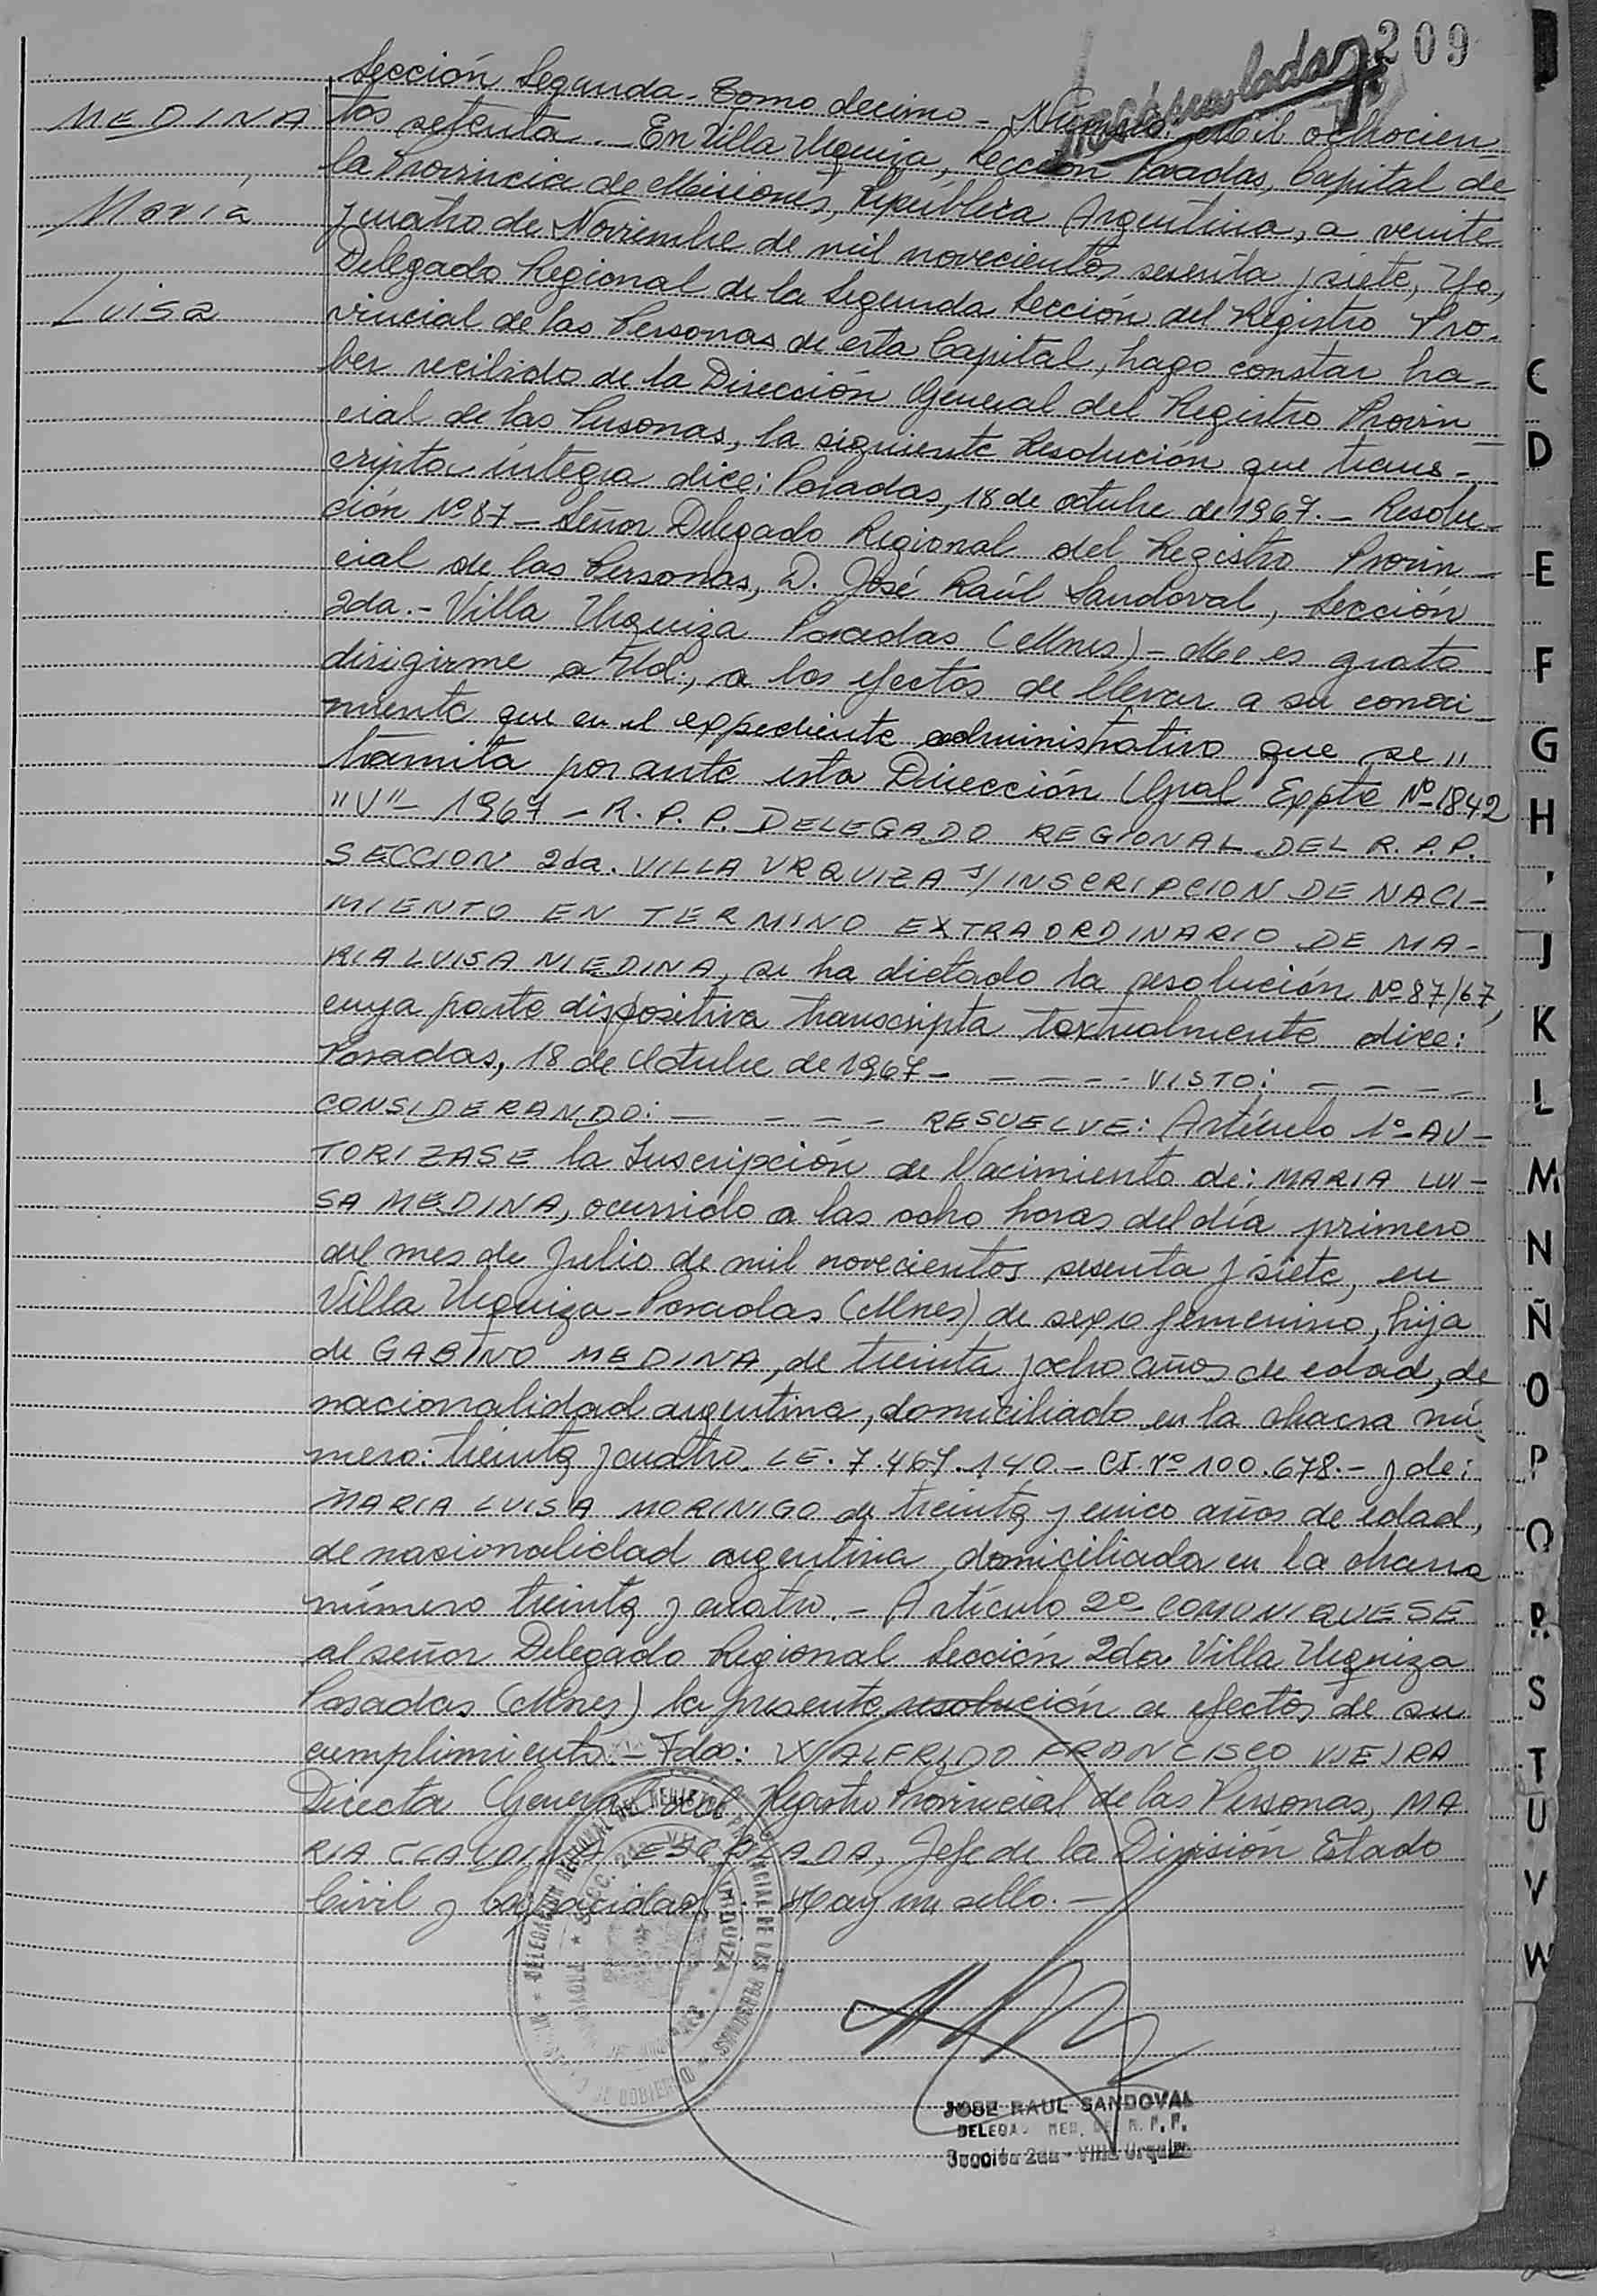 209
MEDINA
María
Luisa
Sección Segunda - Tomo decimo - Número: Mil ochocien=
tos setenta.- En Villa Urquiza, Sección Posadas, Capital de
la Provincia de Misiones, República Argentina, a veinte
y cuatro de Noviembre de mil novecientos sesenta y siete, Yo,
Delegado Regional de la Segunda Sección del Registro Pro-
vincial de las Personas de esta Capital, hago constar ha-
ber recibido de la Dirección General del Registro Provin-
cial de las Personas, la siguiente Resolución que trans-
cripta integra dice: Posadas, 18 de octubre de 1967.- Resolu-
ción Nº 87 - Señor Delegado Regional del Registro Provin-
cial de las Personas, D. José Raúl Sandoval, Sección
2da.- Villa Urquiza Posadas (Mnes) - Me es grato
dirigirme a Ud., a los efectos de llevar a su conoci-
miento que en el expediente administrativo que se "
tramita por ante esta Dirección Gral Expte Nº 1842
"V" - 1967 - R.P.P. DELEGADO REGIONAL DEL R.P.P.
SECCION 2da. VILLA URQUIZA s/INSCRIPCION DE NACI-
MIENTO EN TERMINO EXTRAORDINARIO DE MA-
RIA LUISA MEDINA, se ha dictado la resolución Nº 87/67,
cuya parte dispositiva transcripta textualmente dice:
Posadas, 18 de Octubre de 1967 - - - - - VISTO: - - - -
CONSIDERANDO: - - - - RESUELVE: Artículo 1º - AU-
TORIZASE la Inscripción de Nacimiento de: MARIA LUI-
SA MEDINA, ocurrido a las ocho horas del día primero
del mes de Julio de mil novecientos sesenta y siete, en
Villa Urquiza - Posadas (Mnes) de sexo femenino, hija
de GABINO MEDINA, de treinta y ocho años de edad, de
nacionalidad argentina, domiciliado en la chacra nú-
mero: treinta y cuatro. LE. 7.467.140.- CI. Nº 100.678.- y de:
MARIA LUISA MORINIGO de treinta y cinco años de edad,
de nacionalidad argentina, domiciliada en la chacra
número treinta y cuatro.- Artículo 2º COMUNIQUESE
al señor Delegado Regional Sección 2da Villa Urquiza
Posadas (Mnes) la presente resolución a efectos de su
cumplimiento.- Fdos: WALFRIDO FRANCISCO VIEIRA
Director General del Registro Provincial de las Personas, MA
RIA CLAUDINA ESCALADA, Jefe de la División Estado
Civil y Capacidad.- Hay un sello.-
DELEGACION REGIONAL DEL REGISTRO PROVINCIAL DE LAS PERSONAS
SECC. 2da VILLA URQUIZA
JOSE RAUL SANDOVAL
DELEGA. REG. DEL R. P. P.
Sección 2da - Villa Urquiza
C
D
E
F
G
H
J
K
L
M
N
Ñ
O
P
Q
R
S
T
U
V
W